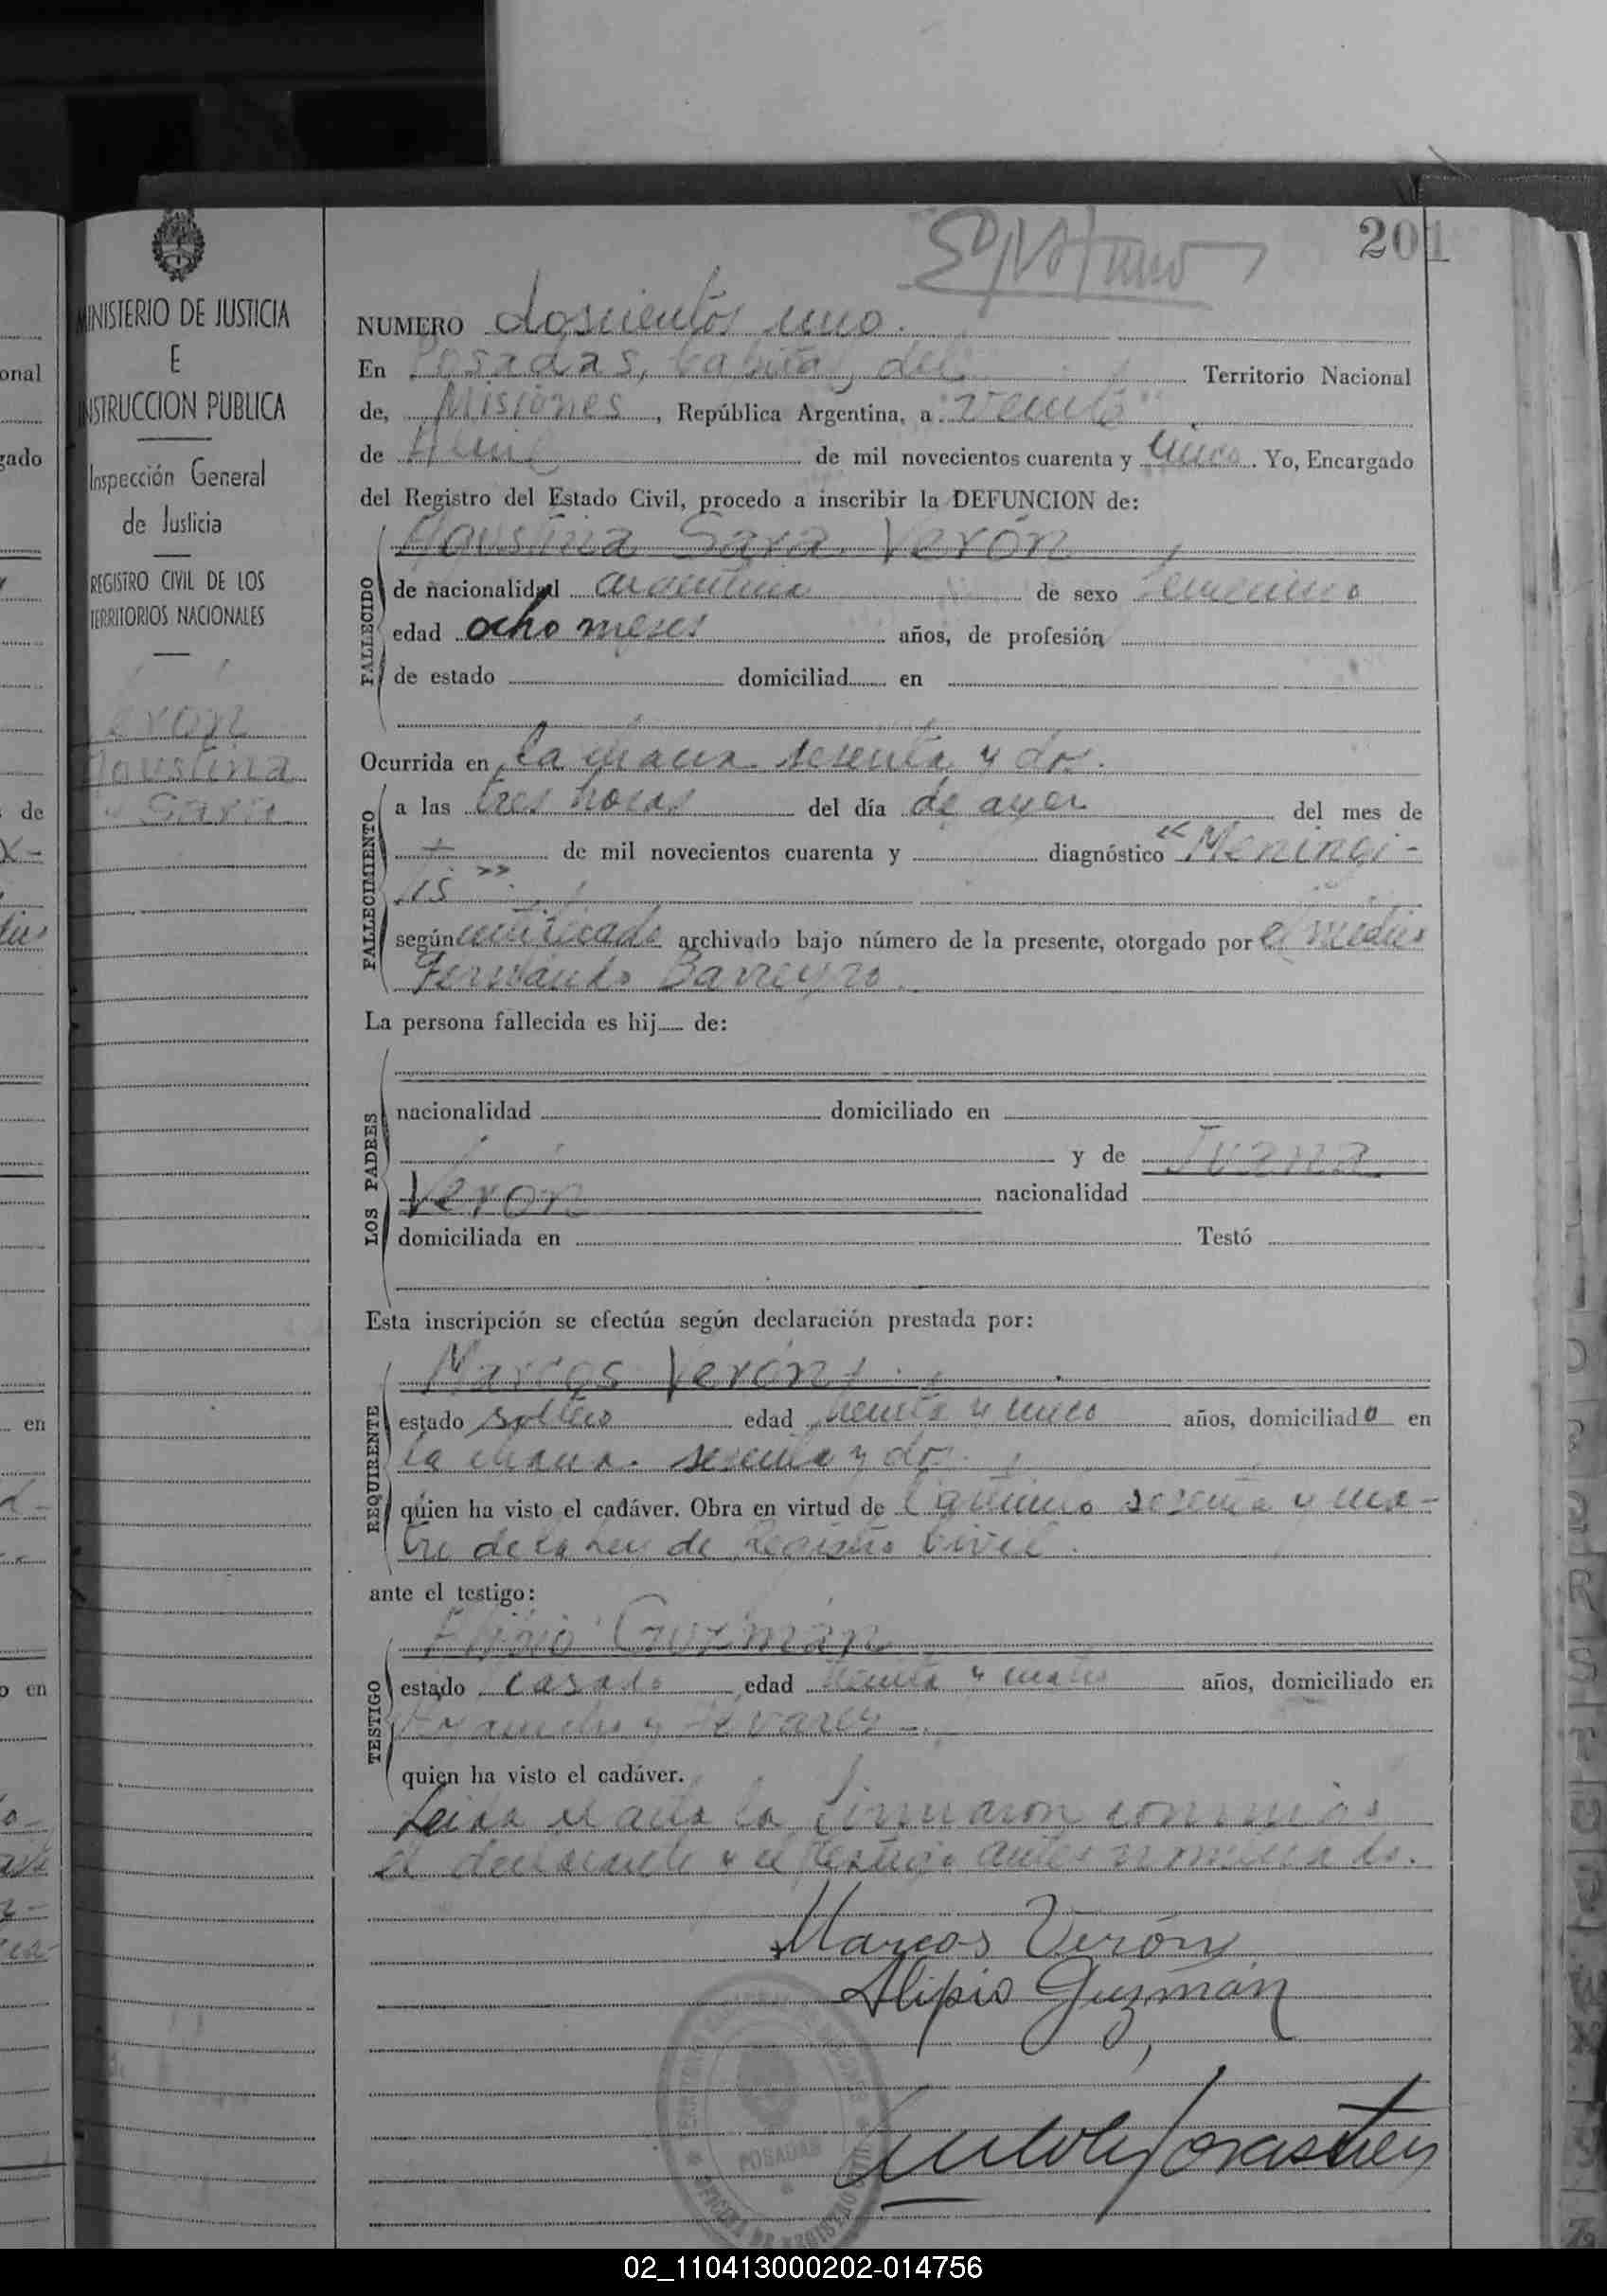 201
MINISTERIO DE JUSTICIA
E
INSTRUCCION PUBLICA
Inspección General
de Justicia
REGISTRO CIVIL DE LOS
TERRITORIOS NACIONALES
Verón
Agustina
Sara
NUMERO doscientos uno.
En Posadas, Capital, del Territorio Nacional
de, Misiones, República Argentina, a veinte
de Abril de mil novecientos cuarenta y cinco. Yo, Encargado
del Registro del Estado Civil, procedo a inscribir la DEFUNCION de:
Agustina Sara Verón
FALLECIDO
de nacionalidad argentina de sexo femenino
edad ocho meses años, de profesión
de estado domiciliad en
Ocurrida en la chacra sesenta y dos.
FALLECIMIENTO
a las tres horas del día de ayer del mes de
de mil novecientos cuarenta y diagnóstico "Meningi-
tis"
según certificado archivado bajo número de la presente, otorgado por el médico
Fernando Barreyro.
La persona fallecida es hij de:
LOS PADRES
nacionalidad domiciliado en
y de Juana
Verón nacionalidad
domiciliada en Testó
Esta inscripción se efectúa según declaración prestada por:
REQUIRENTE
Marcos Verón
estado soltero edad años, domiciliado en
la chacra sesenta y dos.
quien ha visto el cadáver. Obra en virtud de sesenta y cua-
tro de la Ley de Registro Civil.
ante el testigo:
TESTIGO
Alipio Guzmán
estado casado edad treinta y cuatro años, domiciliado en
quien ha visto el cadáver.
Leida el acta la firmaron conmigo
el declarante y el testigo antes nominado.
Marcos Verón
Alipio Guzmán
POSADAS
02_110413000202-014756